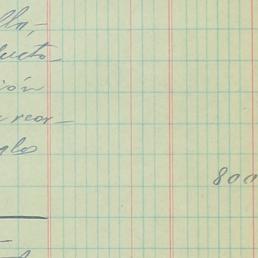 lla,-
ducto-
ión
a reor-
glo
800